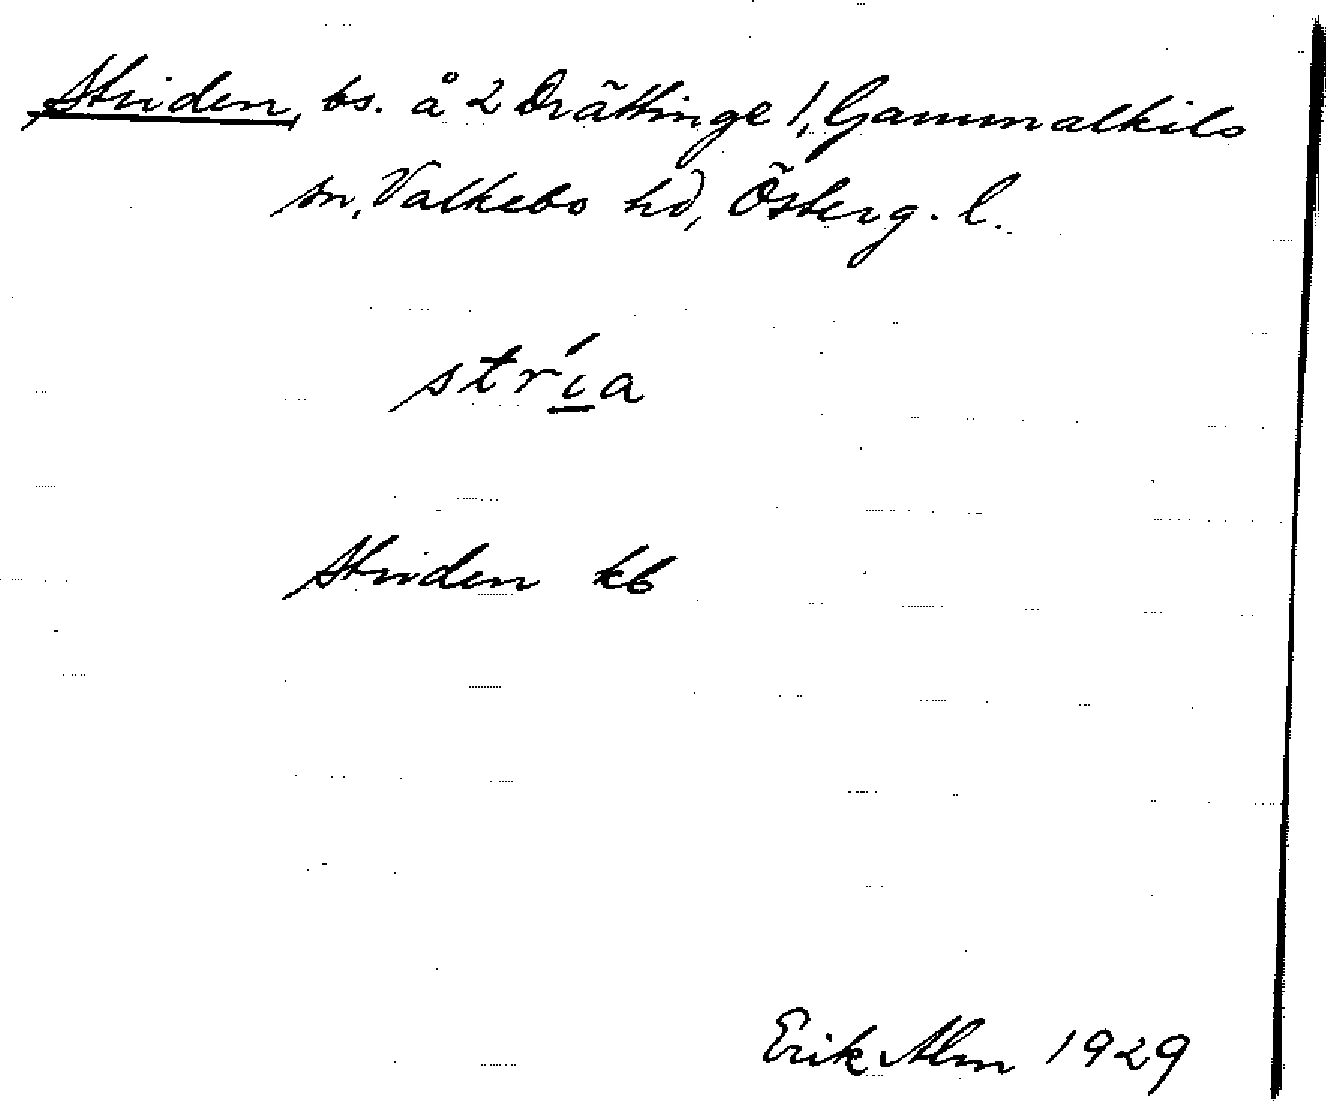 Striden, bs. å 2 Drättinge 1, Gammalkils
sn, Valkebo hd, Östergög. l.
stría
Striden kb
Erik Alm 1929